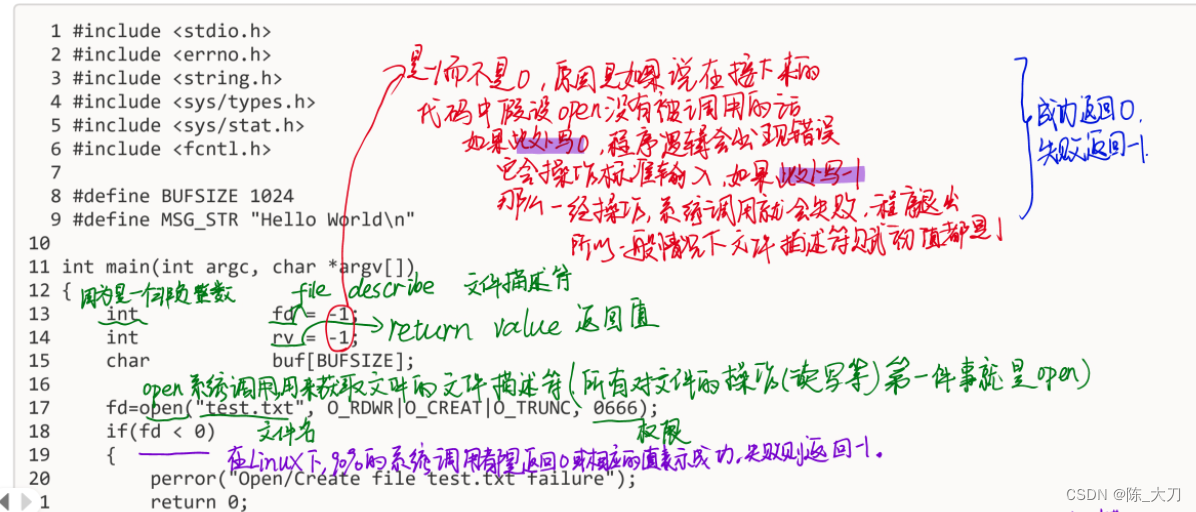 1 #include <stdio.h>
2 #include <errno.h>
3 #include <string.h>
4 #include <sys/types.h>
5 #include <sys/stat.h>
6 #include <fcntl.h>
7
8 #define BUFSIZE 1024
9 #define MSG_STR "Hello World\n"
10
是-1而不是0，原因是如果说在接下来的
代码中假设open没有被调用的话
如果此处写0，程序逻辑会出现错误
它会操作标准输入，如果此处写-1
那么一经操作，系统调用就会失败，程序退出
所以一般情况下文件描述符赋初值都是-1
成功返回0，
失败返回-1.
11 int main(int argc, char *argv[])
12 {
因为是一个非负整数
file describe 文件描述符
13 int fd = -1;
14 int rv = -1;
return value 返回值
15 char buf[BUFSIZE];
16
open系统调用用来获取文件的文件描述符(所有对文件的操作(读写等)第一件事就是open)
17 fd=open("test.txt", O_RDWR|O_CREAT|O_TRUNC, 0666);
18 if(fd < 0)
文件名
权限
19 {
在Linux下，90%的系统调用都是返回0或相应的值表示成功，失败则返回-1。
20 perror("Open/Create file test.txt failure");
1 return 0;
CSDN @陈_大刀